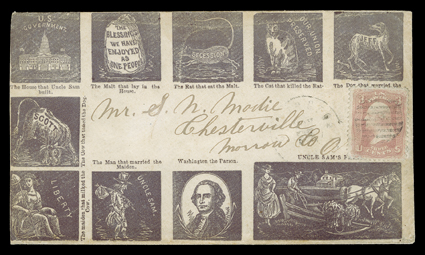 U.S.
GOVERNMENT
THE
BLESSINGS
WE HAVE
ENJOYED
AS
ONE PEOPLE
SECESSION
OUR UNION
PRESERVER
JEFF
The House that Uncle Sam
built.
The Malt that lay in the
House.
The Rat that eat the Malt.
The Cat that killed the Rat.
The Dog that worried the
SCOTT
Mr. S. N. Modie
Chesterville
Morrow Co
O
The Man that married the
Maiden.
Washington the Parson.
UNCLE SAM'S
The maiden that milked the
Cow.
LIBERTY
UNCLE SAM